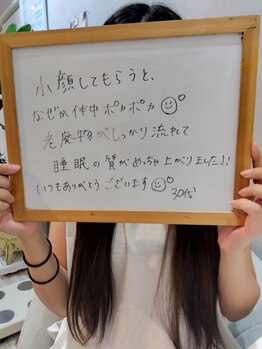 小顔してもらうと、
なぜか体中ポカポカ
老廃物がしっかり流れて
睡眠の質がめっちゃ上がりました!!
いつもありがとうございます
30代